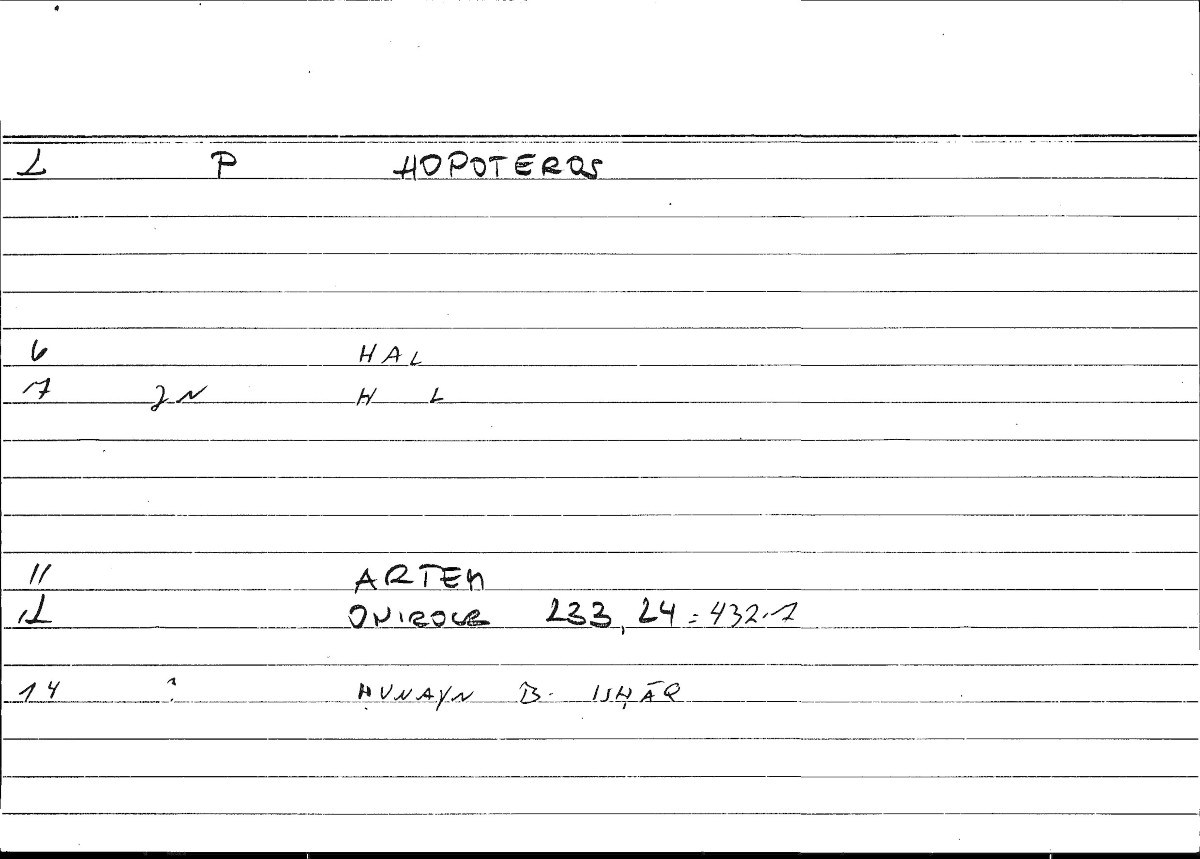 2 P HOPOTEROS
6 HAL
7 JN H L
11 ARTEM
12 ONIROCR 233, 24 = 432.7
14 ? ḤUNAYN B. ISḤĀQ